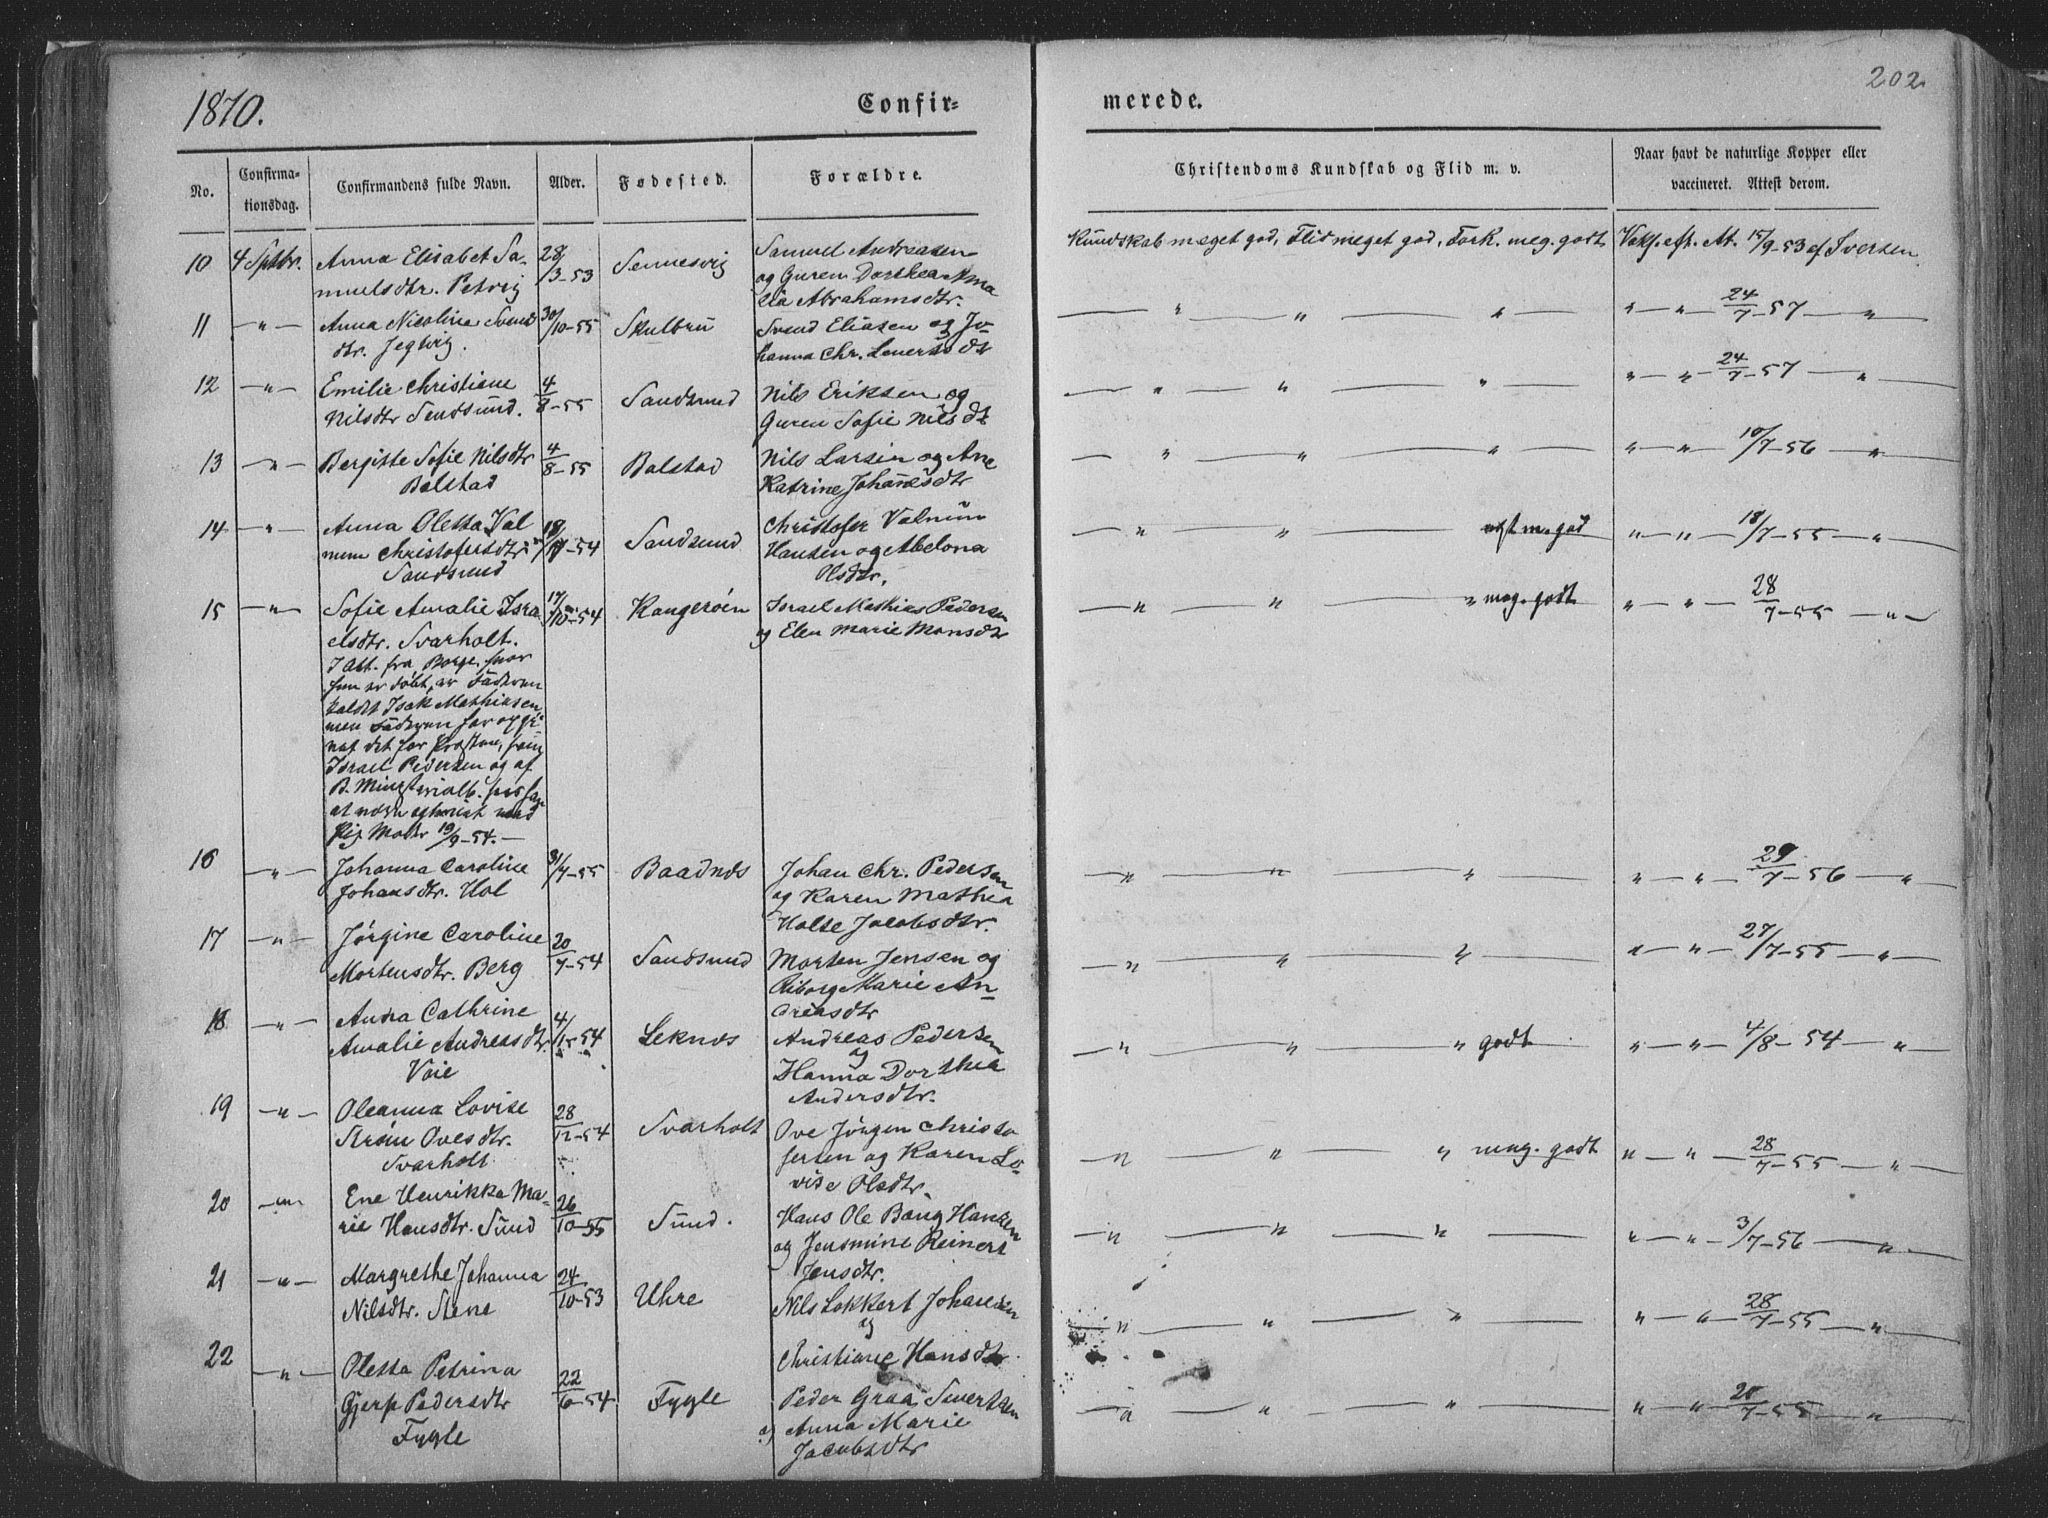 202.
1870.
Confir-
merede.
No.
Confirma-
tionsdag.
Confirmandens fulde Navn.
Alder.
Fødested.
Forældre.
Christendoms Kundskab og Flid m. v.
Naar havt de naturlige Kopper eller
vaccineret. Attest derom.
10 4 Sptbr. Anna Elisabet Sa- 28/3-53 Sennesvig Samuel Andreasen Kundskab meget god, Flid meget god, Fork. meg. godt 15/9-53 af Sversen
muelsdtr. Petvig og Guren Dorthea Ama
lia Abrahamsdtr.
11 -"- Anna Nicoline Svend 30/10-55 Skulbru Svend Eliasen og Jo- " " " " " 24/7-57 "
dtr. Jegtvig. hanna Chr.
12 -"- Emilie Christiane 4/8-55 Sandsund Nils Eriksen og " " " " " 24/7-57 "
Nilsdtr Sandsund. Guren Sofie Nilsdt
13 -"- Bergitte Sofie Nilsdtr 4/8-55 Balstad Nils Larsen og Ane " " " " " 10/7-56 "
Balstad Katrine Johannesdtr
14 " Anna Oletta Val 18/ -54 Sandsund Christofer Valnum " " m. god " " 18/7-55 "
num Christofersdtr Hansen og Abelona
Sandsund Olsdtr.
15 -"- Sofie Amalie Isra 17/10-54 Kangerøien Israel Mathias Pedersen " " " meg. godt " " 28/7-55 "
elsdtr. Svarholt. og Elen Marie Monsdtr
I Att. fra Borge, hvor
hun er døbt, er Faderen
kaldt Isak Mathiasen,
men Faderen har opgi-
vet det for Præsten,
Israel Pedersen og af
B. Ministerialb.
med
Pig. Moder 19/9-54.
16 -"- Johanna Caroline 31/7-55 Baadnes Johan Chr. Pedersen " " " " " 29/7-56 "
Johansdtr. Hol og Karen Mathea
Holte Jacobsdtr.
17 -"- Jørgine Caroline 20/7-54 Sandsund Morten Jensen og " " " " " 27/7-55 "
Mortensdtr. Berg Riborg Marie An-
dreasdtr
18 -"- Anna Cathrine 4/ -54 Leknes Andreas Pedersen " " " godt " " 4/8-54 "
Amalie Andreasdtr. og
Voie Hanna Dorthea
Andersdtr.
19 -"- Oleanna Lovise 28/12-54 Svarholt Ove Jörgen Christo " " " meg. godt " " 28/7-55 "
Strøm Ovesdtr. fersen og Karen Lo-
Svarholt vise Olsdtr.
20 -"- Ene Henrikka Ma- 26/10-55 Sund. Hans Ole Bang Hansen " " " " " 3/7-56 "
rie Hansdtr. Sund og Jensmine Reinert
Jensdtr.
21 -"- Margrethe Johanna 24/10-53 Uhre Nils Lokkert Johansen " " " " " 28/7-55 "
Nilsdtr. Stene og
Christiane Hansdtr.
22 -"- Oletta Petrina 22/6-54 Fygle Peder Graa Sivertsen " " " " " 28/7-55 "
Gjerp Pedersdtr og Anna Marie
Fygle Jacobsdtr